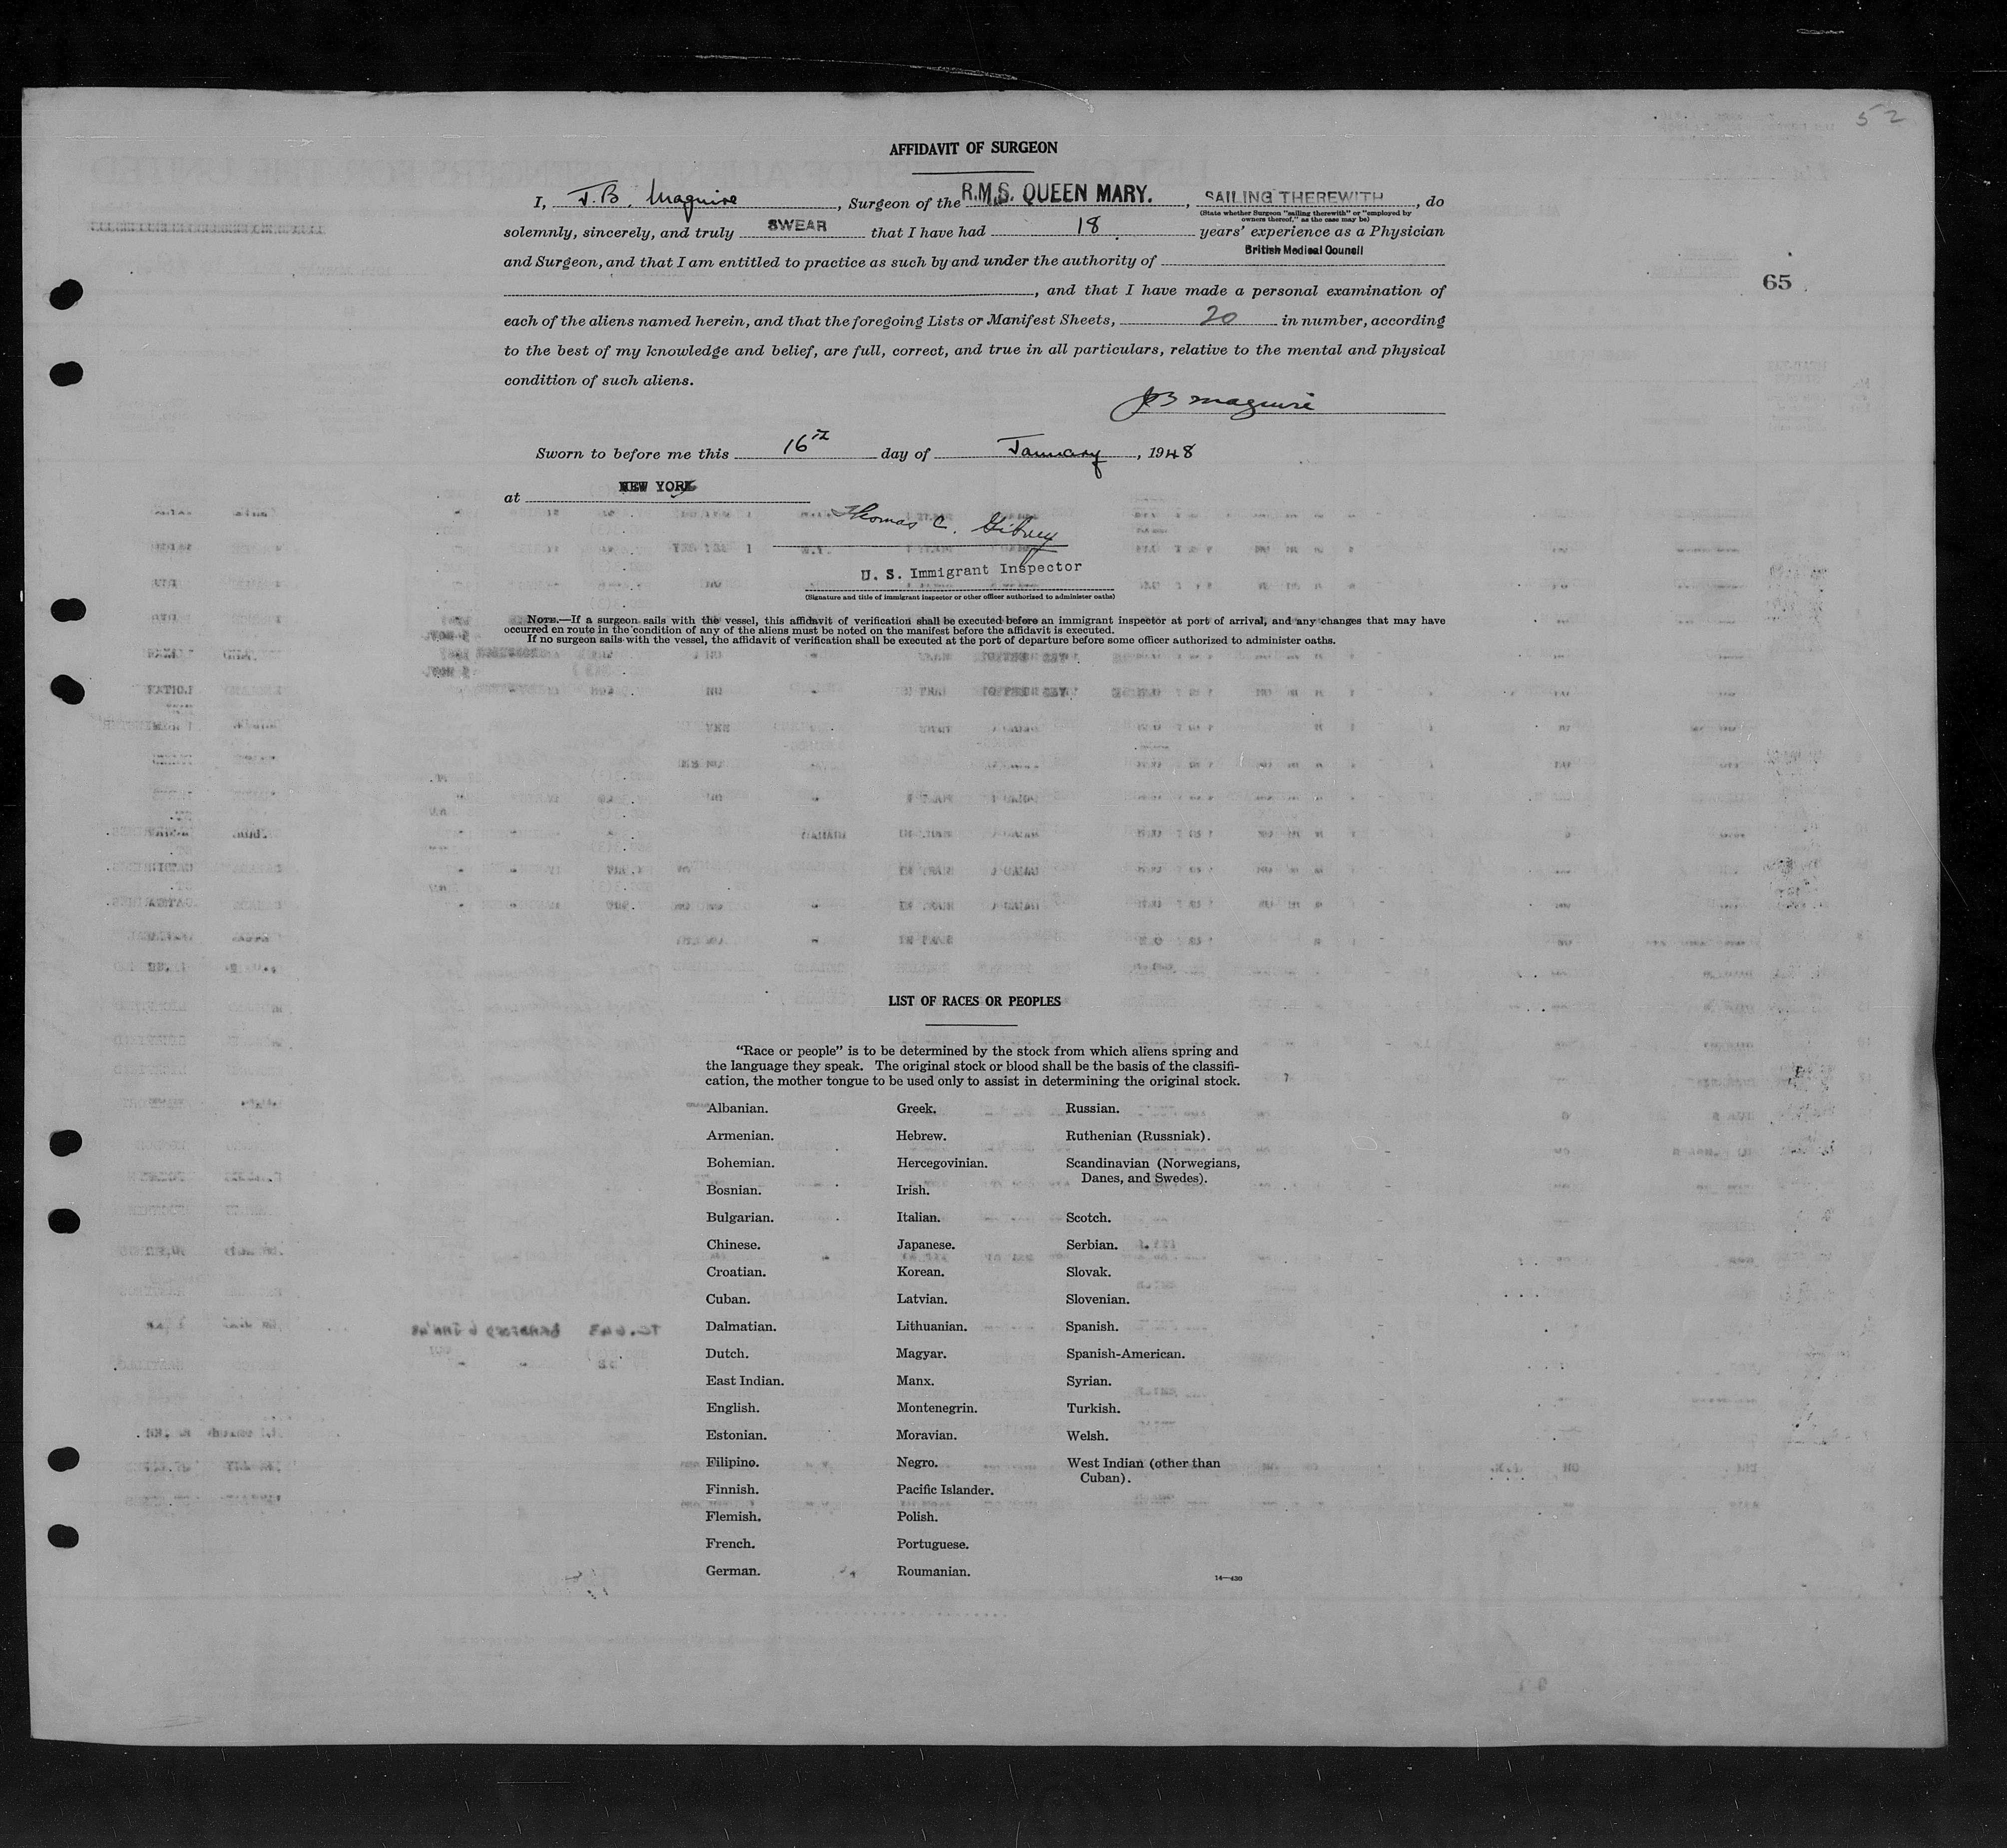 52
AFFIDAVIT OF SURGEON
I, J.B. Maguire, Surgeon of the R.M.S. QUEEN MARY., SAILING THEREWITH, do
(State whether Surgeon "sailing therewith" or "employed by
owners thereof," as the case may be)
solemnly, sincerely, and truly SWEAR that I have had 18 years' experience as a Physician
British Medical Council
and Surgeon, and that I am entitled to practice as such by and under the authority of
65
, and that I have made a personal examination of
each of the aliens named herein, and that the foregoing Lists or Manifest Sheets, 20 in number, according
to the best of my knowledge and belief, are full, correct, and true in all particulars, relative to the mental and physical
condition of such aliens.
JB Maguire
Sworn to before me this 16th day of January, 1948
at NEW YORK
Thomas C. Gibney
U. S. Immigrant Inspector
(Signature and title of immigrant inspector or other officer authorized to administer oaths)
NOTE.—If a surgeon sails with the vessel, this affidavit of verification shall be executed before an immigrant inspector at port of arrival, and any changes that may have
occurred en route in the condition of any of the aliens must be noted on the manifest before the affidavit is executed.
If no surgeon sails with the vessel, the affidavit of verification shall be executed at the port of departure before some officer authorized to administer oaths.
LIST OF RACES OR PEOPLES
"Race or people" is to be determined by the stock from which aliens spring and
the language they speak. The original stock or blood shall be the basis of the classifi-
cation, the mother tongue to be used only to assist in determining the original stock.
Albanian.
Armenian.
Bohemian.
Bosnian.
Bulgarian.
Chinese.
Croatian.
Cuban.
Dalmatian.
Dutch.
East Indian.
English.
Estonian.
Filipino.
Finnish.
Flemish.
French.
German.
Greek.
Hebrew.
Hercegovinian.
Irish.
Italian.
Japanese.
Korean.
Latvian.
Lithuanian.
Magyar.
Manx.
Montenegrin.
Moravian.
Negro.
Pacific Islander.
Polish.
Portuguese.
Roumanian.
Russian.
Ruthenian (Russniak).
Scandinavian (Norwegians,
Danes, and Swedes).
Scotch.
Serbian.
Slovak.
Slovenian.
Spanish.
Spanish-American.
Syrian.
Turkish.
Welsh.
West Indian (other than
Cuban).
14—430